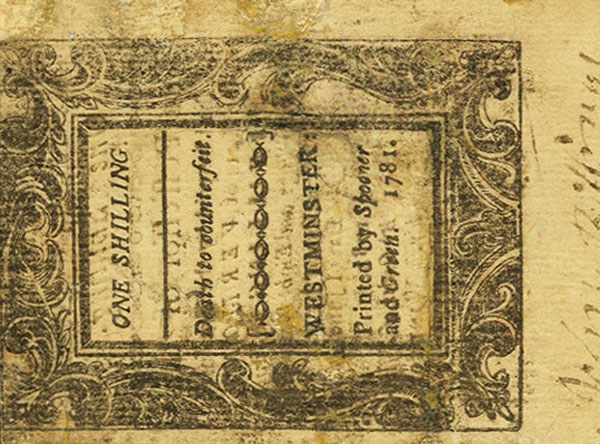 ONE SHILLING.
Death to counterfeit.
WESTMINSTER:
Printed by Spooner
and Green. 1781.